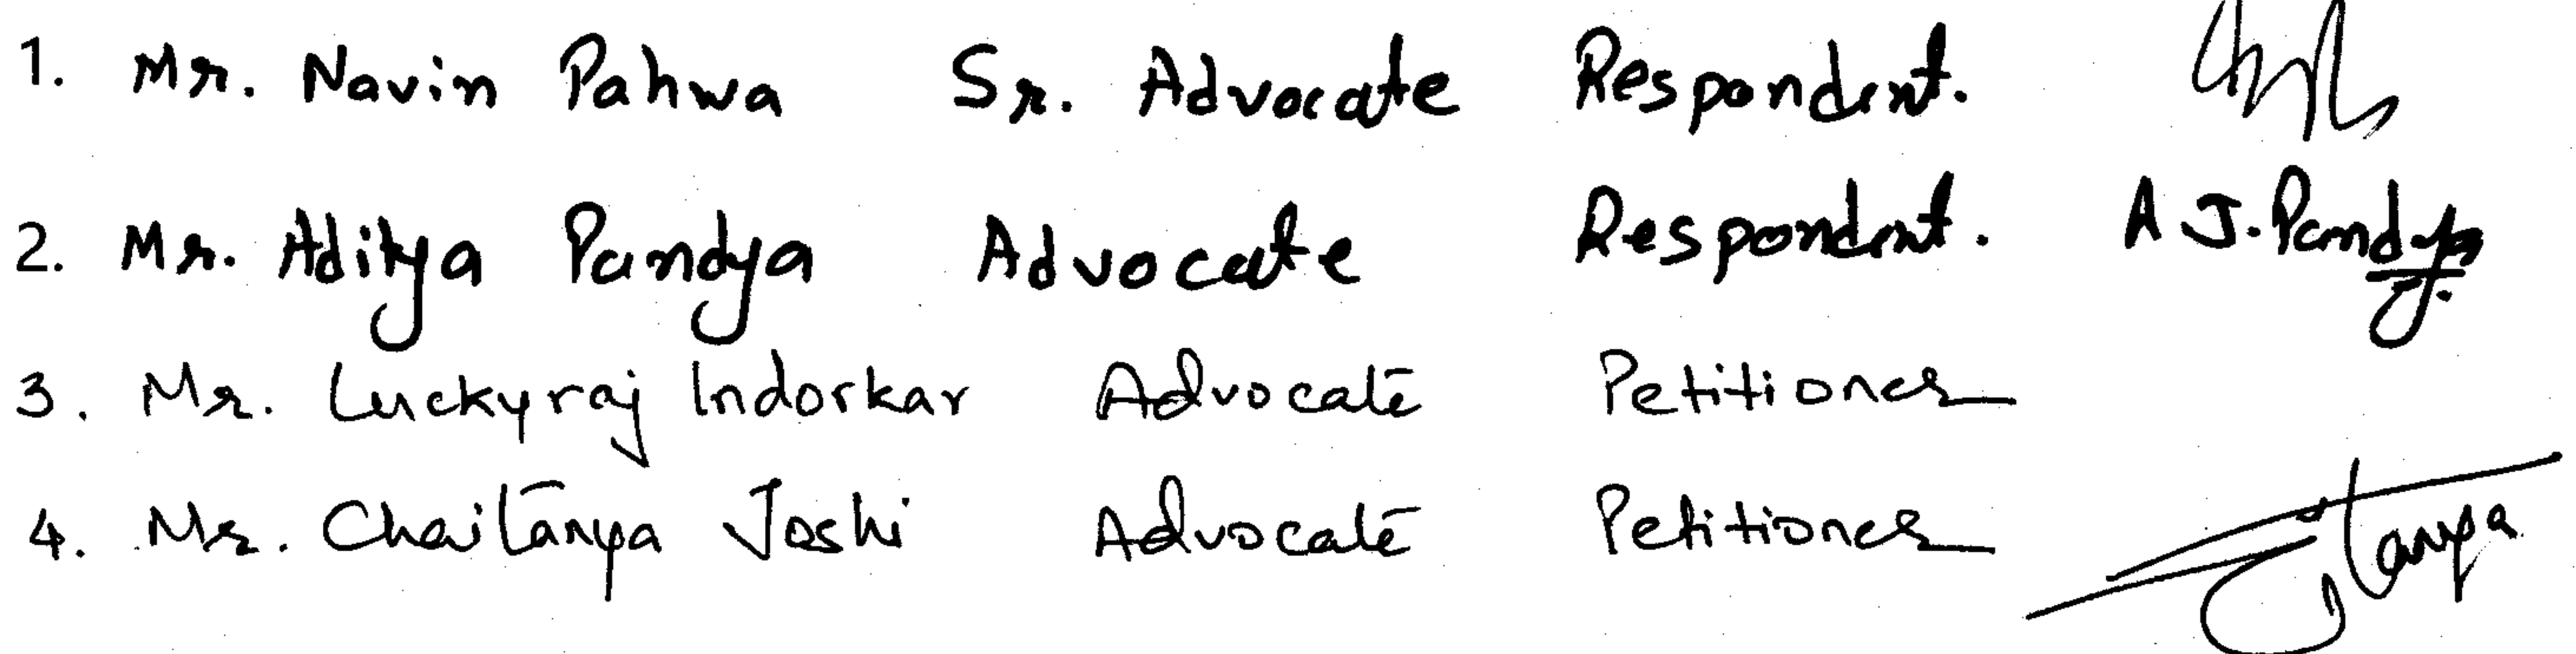 1. Mr. Navin Pahwa Sr. Advocate Respondent.
2. Mr. Aditya Pandya Advocate Respondent. A J. Pandya
3. Mr. Luckyraj Indorkar Advocate Petitioner
4. Mr. Chaitanya Joshi Advocate Petitioner